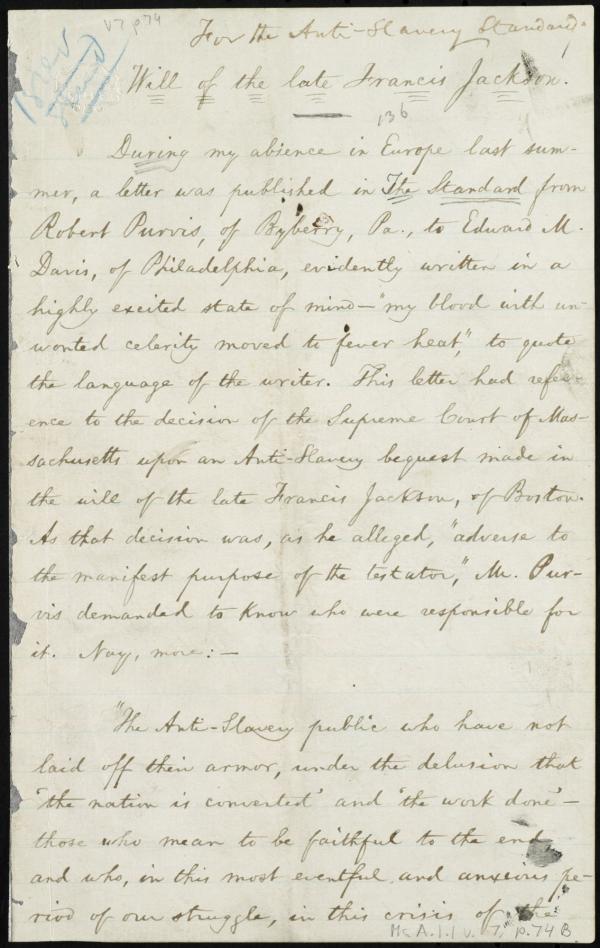 v7 p.74
For the Anti-Slavery Standard.
Will of the late Francis Jackson.
136
During my absence in Europe last sum-
mer, a letter was published in The Standard from
Robert Purvis, of Byberry, Pa., to Edward M.
Davis, of Philadelphia, evidently written in a
highly excited state of mind—"my blood with un-
wonted celerity moved to fever heat," to quote
the language of the writer. This letter had refer-
ence to the decision of the Supreme Court of Mas-
sachusetts upon an Anti-Slavery bequest made in
the will of the late Francis Jackson, of Boston.
As that decision was, as he alleged, "adverse to
the manifest purpose of the testator," Mr. Pur-
vis demanded to know who were responsible for
it. Nay, more:—
"The Anti-Slavery public who have not
laid off their armor, under the delusion that
'the nation is converted' and 'the work done'—
those who mean to be faithful to the end,
and who, in this most eventful and anxious pe-
riod of our struggle, in this crisis of the
Ms A.1.1 v. 7, p. 74 B